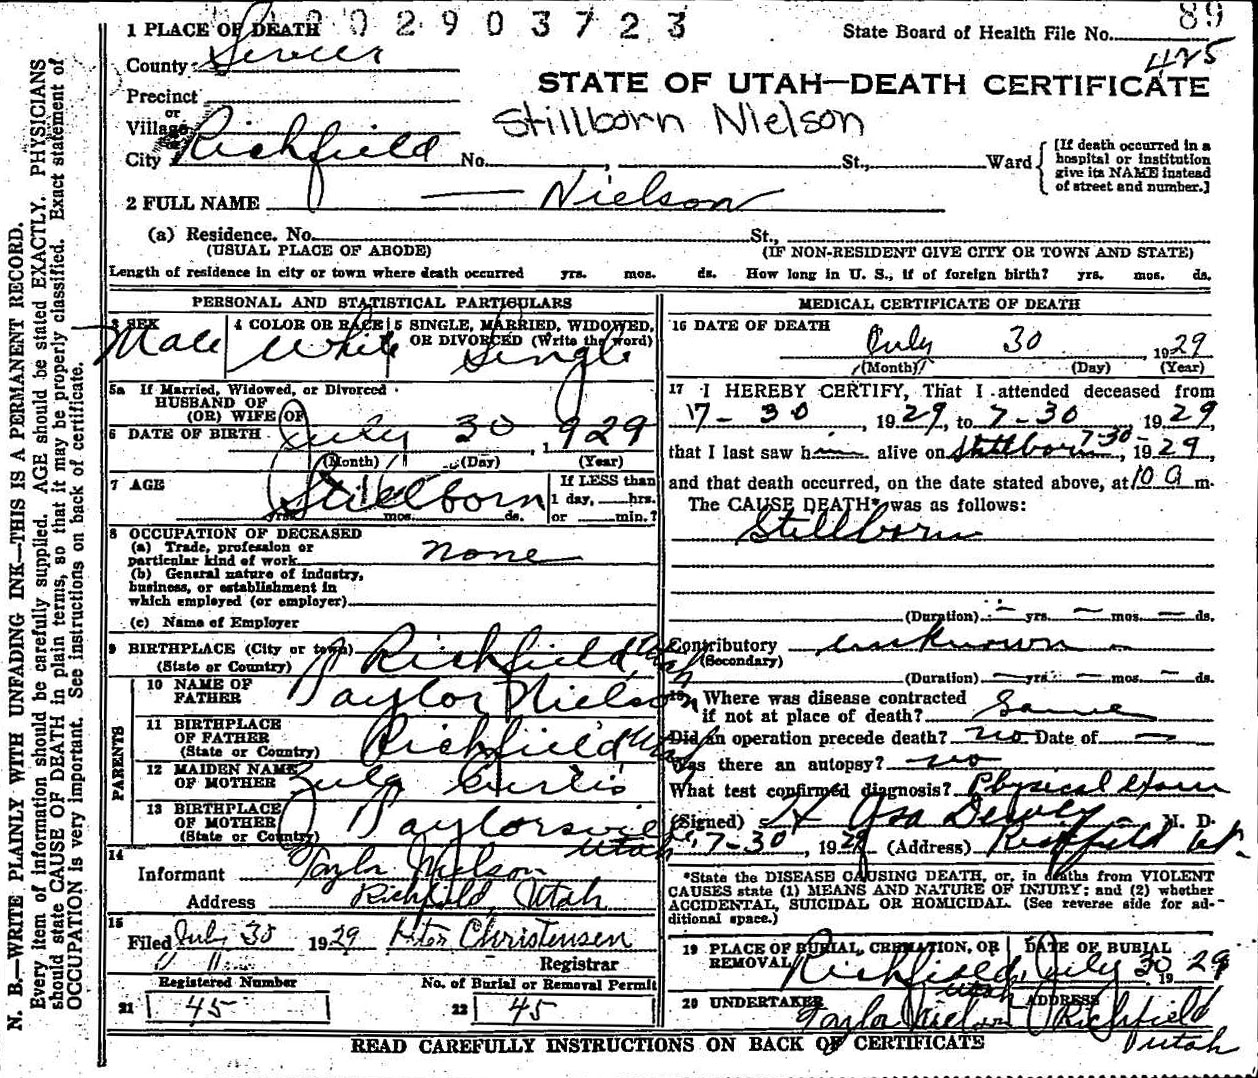 0 0 2 9 0 3 7 2 3
89
1 PLACE OF DEATH
State Board of Health File No.
425
County Sevier
STATE OF UTAH—DEATH CERTIFICATE
Precinct
or
Village
Stillborn Nielson
or
City Richfield No. , St., Ward
[If death occurred in a
hospital or institution
give its NAME instead
of street and number.]
2 FULL NAME — Nielson
(a) Residence. No. St.,
(USUAL PLACE OF ABODE) (IF NON-RESIDENT GIVE CITY OR TOWN AND STATE)
Length of residence in city or town where death occurred yrs. mos. ds. How long in U. S., if of foreign birth? yrs. mos. ds.
PERSONAL AND STATISTICAL PARTICULARS
3 SEX 4 COLOR OR RACE 5 SINGLE, MARRIED, WIDOWED,
OR DIVORCED (Write the word)
Male White Single
5a If Married, Widowed, or Divorced
HUSBAND OF
(OR) WIFE OF
6 DATE OF BIRTH July 30 1929
(Month) (Day) (Year)
7 AGE Stillborn
If LESS than
1 day, hrs.
or min.?
yrs. mos. ds.
8 OCCUPATION OF DECEASED
(a) Trade, profession or
particular kind of work none
(b) General nature of industry,
business, or establishment in
which employed (or employer)
(c) Name of Employer
9 BIRTHPLACE (City or town) Richfield Utah
(State or Country)
PARENTS
10 NAME OF
FATHER Taylor Nielson
11 BIRTHPLACE
OF FATHER Richfield Utah
(State or Country)
12 MAIDEN NAME
OF MOTHER Zula Curtis
13 BIRTHPLACE
OF MOTHER Taylorsville
(State or Country) Utah
14
Informant Taylor Nielson
Address Richfield, Utah
15
Filed July 30 1929 Peter Christensen
Registrar
Registered Number No. of Burial or Removal Permit
21 45 22 45
MEDICAL CERTIFICATE OF DEATH
16 DATE OF DEATH
July 30, 1929
(Month) (Day) (Year)
17 I HEREBY CERTIFY, That I attended deceased from
7-30, 1929, to 7-30 1929
that I last saw h alive on Stillborn 7-30-, 1929,
and that death occurred, on the date stated above, at 10 a m.
The CAUSE DEATH* was as follows:
Stillborn
(Duration) — yrs. — mos. — ds.
Contributory unknown -
(Secondary)
(Duration) — yrs. — mos. — ds.
18 Where was disease contracted
if not at place of death? Same
Did an operation precede death? no Date of —
Was there an autopsy? no
What test confirmed diagnosis? Physical Exam
(Signed) H Asa Dewey M. D.
7-30, 1929 (Address) Richfield Ut.
*State the DISEASE CAUSING DEATH, or, in deaths from VIOLENT
CAUSES state (1) MEANS AND NATURE OF INJURY; and (2) whether
ACCIDENTAL, SUICIDAL OR HOMICIDAL. (See reverse side for ad-
ditional space.)
19 PLACE OF BURIAL, CREMATION, OR
REMOVAL
DATE OF BURIAL
Richfield, Utah July 30 1929
20 UNDERTAKER ADDRESS
Taylor Nielson Richfield
Utah
READ CAREFULLY INSTRUCTIONS ON BACK OF CERTIFICATE
N. B.—WRITE PLAINLY WITH UNFADING INK—THIS IS A PERMANENT RECORD.
Every item of information should be carefully supplied. AGE should be stated EXACTLY. PHYSICIANS
should state CAUSE OF DEATH in plain terms, so that it may be properly classified. Exact statement of
OCCUPATION is very important. See instructions on back of certificate.